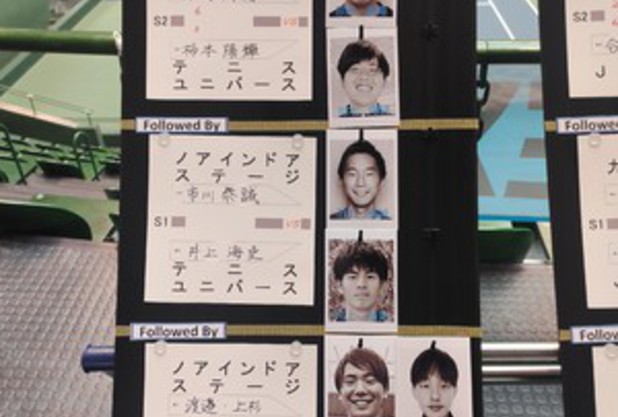 S2
VS
柿本 陽輝
テニス
ユニバース
Followed By
ノアインドア
ステージ
市川 泰誠
S1
VS
井上 海吏
テニス
ユニバース
Followed By
ノアインドア
ステージ
渡邉・上杉
S2
J
Followed
S1
Follow